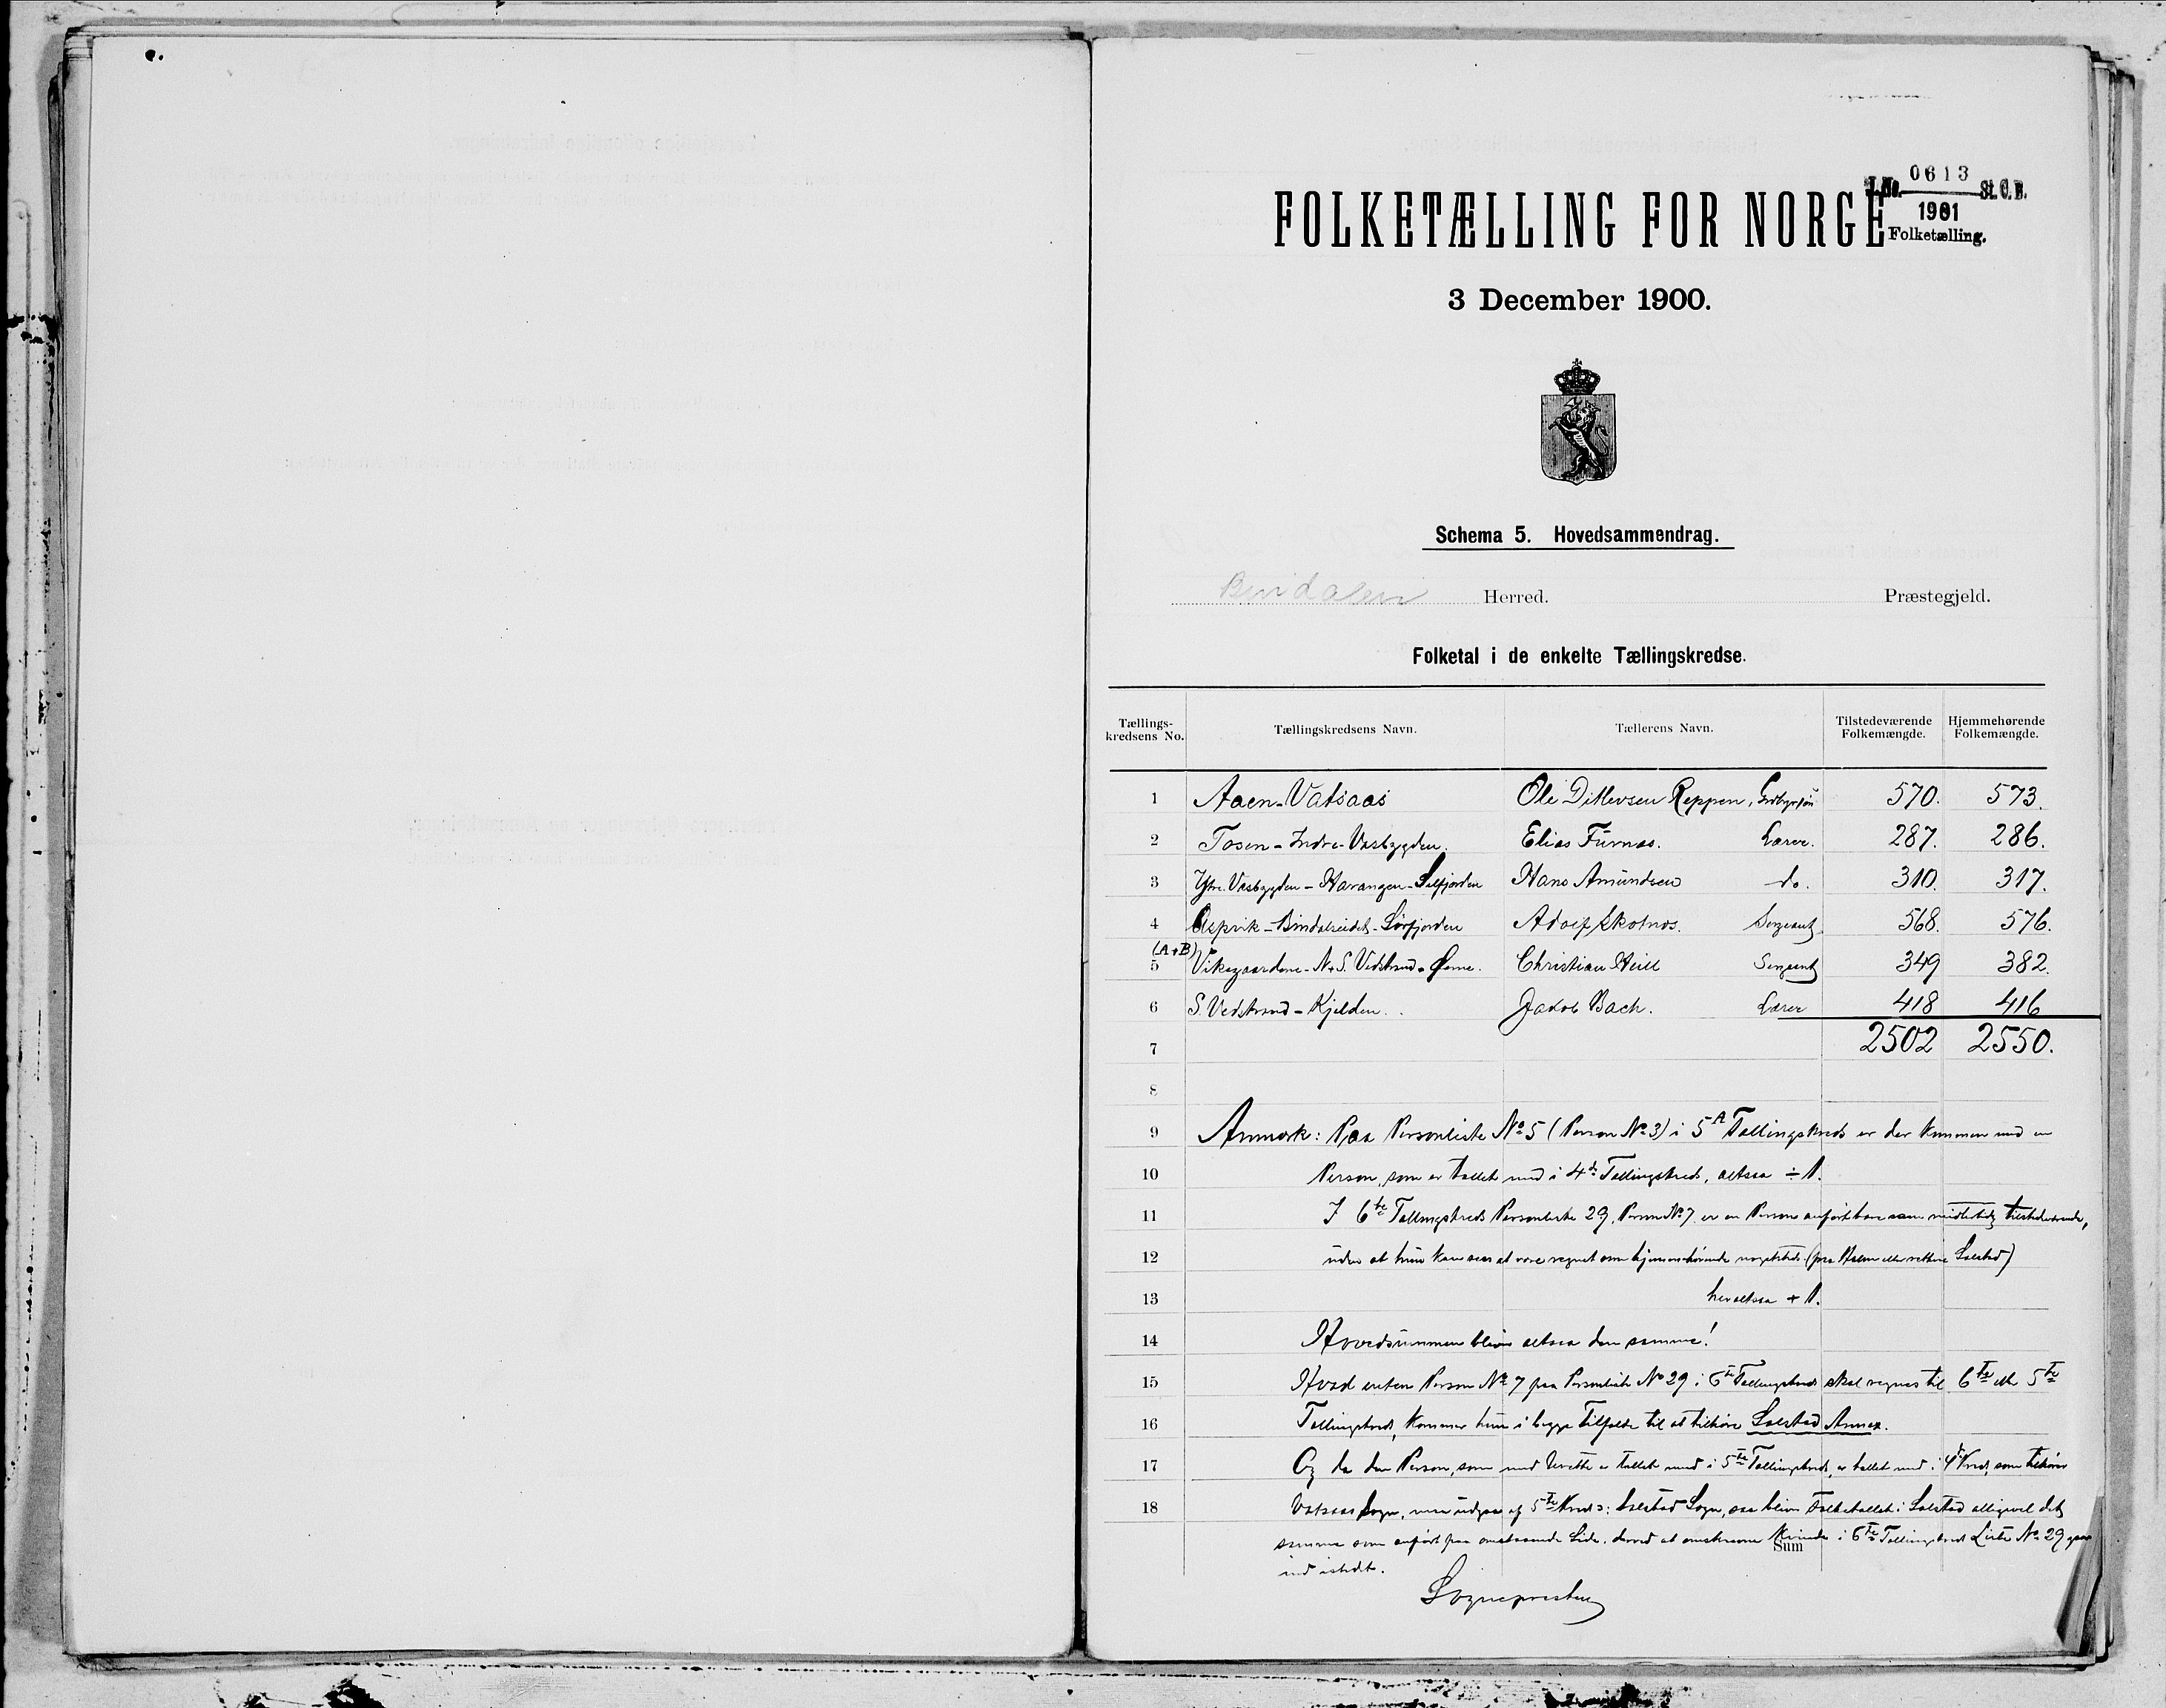 J. No. 0613 St. C. B.
1901
Folketælling.
FOLKETÆLLING FOR NORGE
3 December 1900.
Schema 5. Hovedsammendrag.
Bindalen Herred. Præstegjeld.
Folketal i de enkelte Tællingskredse.
Tællings-kredsens No. Tællingskredsens Navn. Tællerens Navn. Tilstedeværende Folkemængde. Hjemmehørende Folkemængde.
1 Aaen-Vatsaas Ole Ditlevsen Reppen, 570. 573.
2 Tosen-Indre-Vasbygden. Elias Furnæs. Lærer. 287. 286.
3 Ytre. Vasbygden-Harangen-Selfjorden Hans Amundsen do. 310. 317.
4 Aspvik-Bindalseidet-Sørfjorden Adolf Skotnæs. Sergeant 568. 576.
(A+B)
5 Vikegaardene-N+S. Vedstrand-Øerne. Christian Heill Sergeant 349 382.
6 S. Vedstrand-Kjelden. Jakob Bach. Lærer 418 416
7 2502 2550.
8
9 Anmærk: Paa Personliste No 5 (Person No 3) i 5A Tællingskreds er der kommen med en
10 Person, som er tællet med i 4de Tællingskreds, altsaa ÷ 1.
11 I 6te Tællingskreds Personliste 29, Person No 7 er en Person anført bare som midlertidig tilstedeværende,
12 uden at hun kan sees at være regnet som hjemmehørende nogetsteds. (paa Holm eller rettere Solstad)
13 her altsaa + 1.
14 Hovedsummen bliver altsaa den samme!
15 Hvad enten Person No 7 paa Personliste No 29 i 6te Tællingskreds skal regnes til 6te eller 5te
16 Tællingskreds, kommer hun i begge Tilfælde til at tilhøre Solstad Annex.
17 Og da den Person, som med Urette er tællet med i 5te Tællingskreds, er tællet med i 4de Kreds, som tilhører
18 Vatsaas Sogn, maa udgaa af 5te Kreds: Solstad Sogn, saa bliver Folketallet i Solstad alligevel det
samme som anført paa omstaaende Side, derved at omskrevne Kvinde i 6te Tællingskreds Liste No 29 gaar
Sum
ind istedet.
Sognepresten